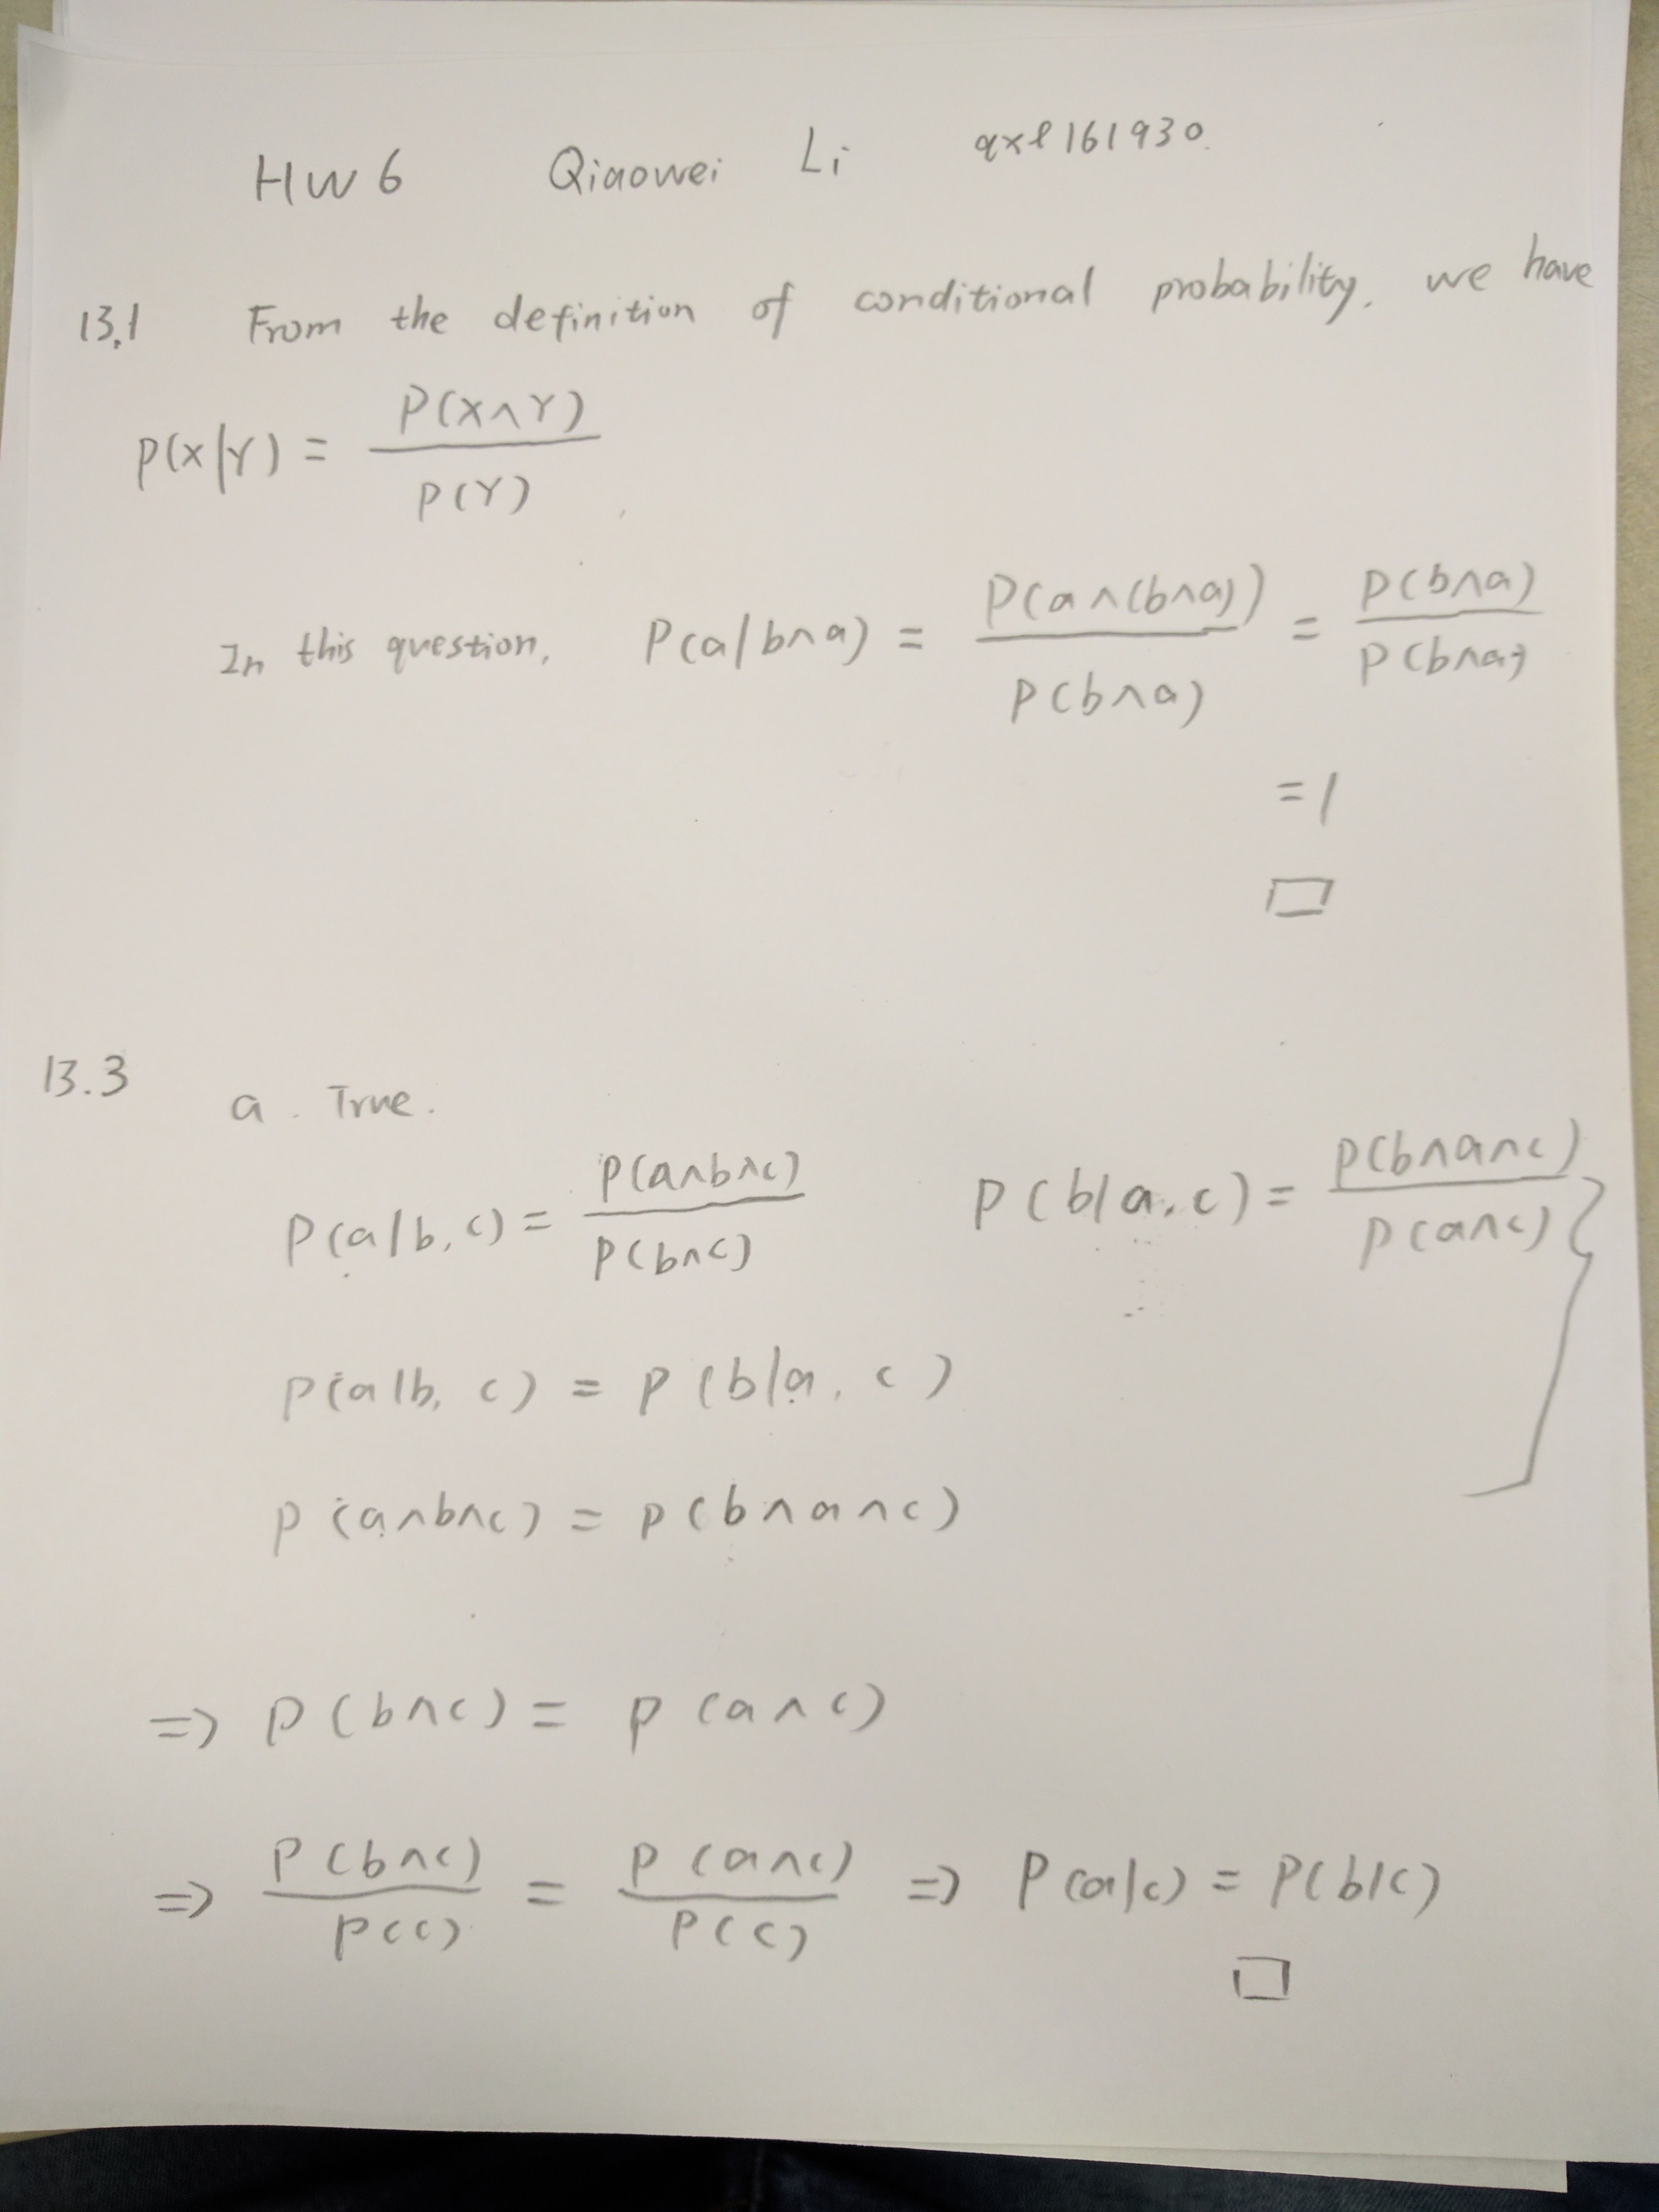 HW 6 Qiaowei Li qxl161930.
13.1 From the definition of conditional probability, we have
P(X|Y) = P(X∧Y) / P(Y)
In this question, P(a|b∧a) = P(a∧(b∧a)) / P(b∧a) = P(b∧a) / P(b∧a)
= 1
□
13.3 a. True.
P(a|b,c) = P(a∧b∧c) / P(b∧c) P(b|a,c) = P(b∧a∧c) / P(a∧c)
P(a|b,c) = P(b|a,c)
P(a∧b∧c) = P(b∧a∧c)
=> P(b∧c) = P(a∧c)
=> P(b∧c) / P(c) = P(a∧c) / P(c) => P(a|c) = P(b|c)
□